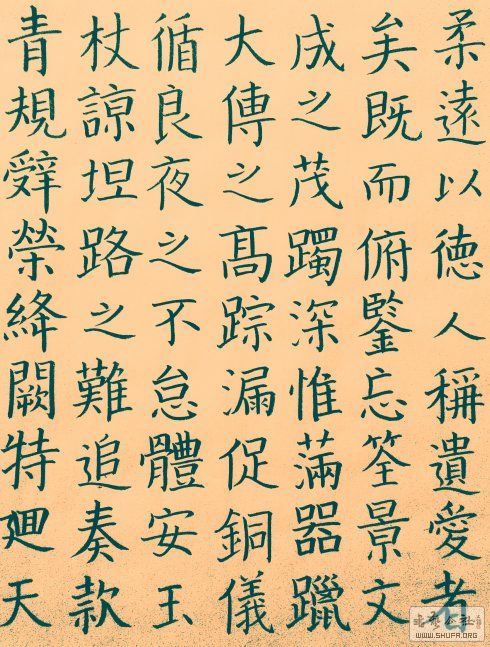 柔遠以徳人稱遺愛者
矣既而俯鑒忘筌景文
成之茂躅深惟滿器躐
大傅之髙踪漏促銅儀
循良夜之不怠體安玉
杖諒坦路之難追奏款
青規辤榮絳闕特廻天
WWW.SHUFA.ORG